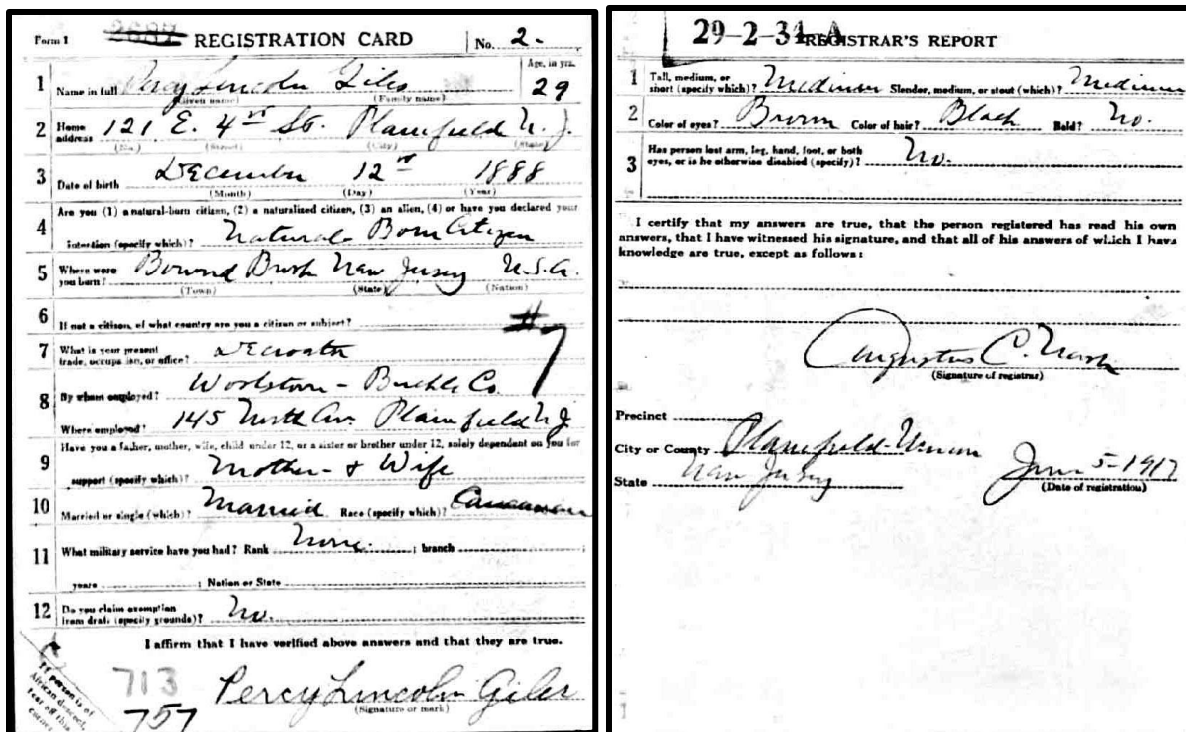 Form 1 2687 REGISTRATION CARD No. 2.
1 Name in full Percy Lincoln Giles Age, in yrs. 29
(Given name) (Family name)
2 Home address 121 E. 4th St. Plainfield N. J.
(No.) (Street) (City) (State)
3 Date of birth December 12th 1888
(Month) (Day) (Year)
4 Are you (1) a natural-born citizen, (2) a naturalized citizen, (3) an alien, (4) or have you declared your
intention (specify which)? Natural Born Citizen
5 Where were you born? Bound Brook New Jersey U.S.A.
(Town) (State) (Nation)
6 If not a citizen, of what country are you a citizen or subject?
#7
7 What is your present trade, occupation, or office? Decorator
8 By whom employed? Woolston - Buckle Co.
Where employed? 145 North Av. Plainfield N.J.
9 Have you a father, mother, wife, child under 12, or a sister or brother under 12, solely dependent on you for
support (specify which)? Mother & Wife
10 Married or single (which)? Married Race (specify which)? Caucasian
11 What military service have you had? Rank None. ; branch
years ; Nation or State
12 Do you claim exemption from draft (specify grounds)? No.
I affirm that I have verified above answers and that they are true.
713
757
Percy Lincoln Giles
(Signature or mark)
If person is of
African descent,
tear off this
corner
29-2-34 A
REGISTRAR'S REPORT
1 Tall, medium, or short (specify which)? Medium Slender, medium, or stout (which)? Medium
2 Color of eyes? Brown Color of hair? Black Bald? No.
3 Has person lost arm, leg, hand, foot, or both
eyes, or is he otherwise disabled (specify)? No.
I certify that my answers are true, that the person registered has read his own
answers, that I have witnessed his signature, and that all of his answers of which I have
knowledge are true, except as follows:
Augustus C. Nash
(Signature of registrar)
Precinct
City or County Plainfield-Union
State New Jersey
June 5-1917
(Date of registration)